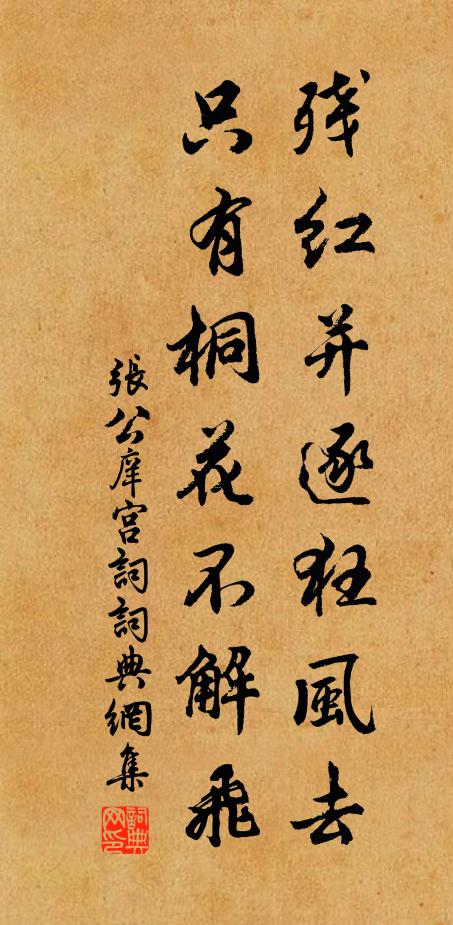 残红并逐狂風去
只有桐花不解飛
張公庠宫詞詞典網集
詞典网印